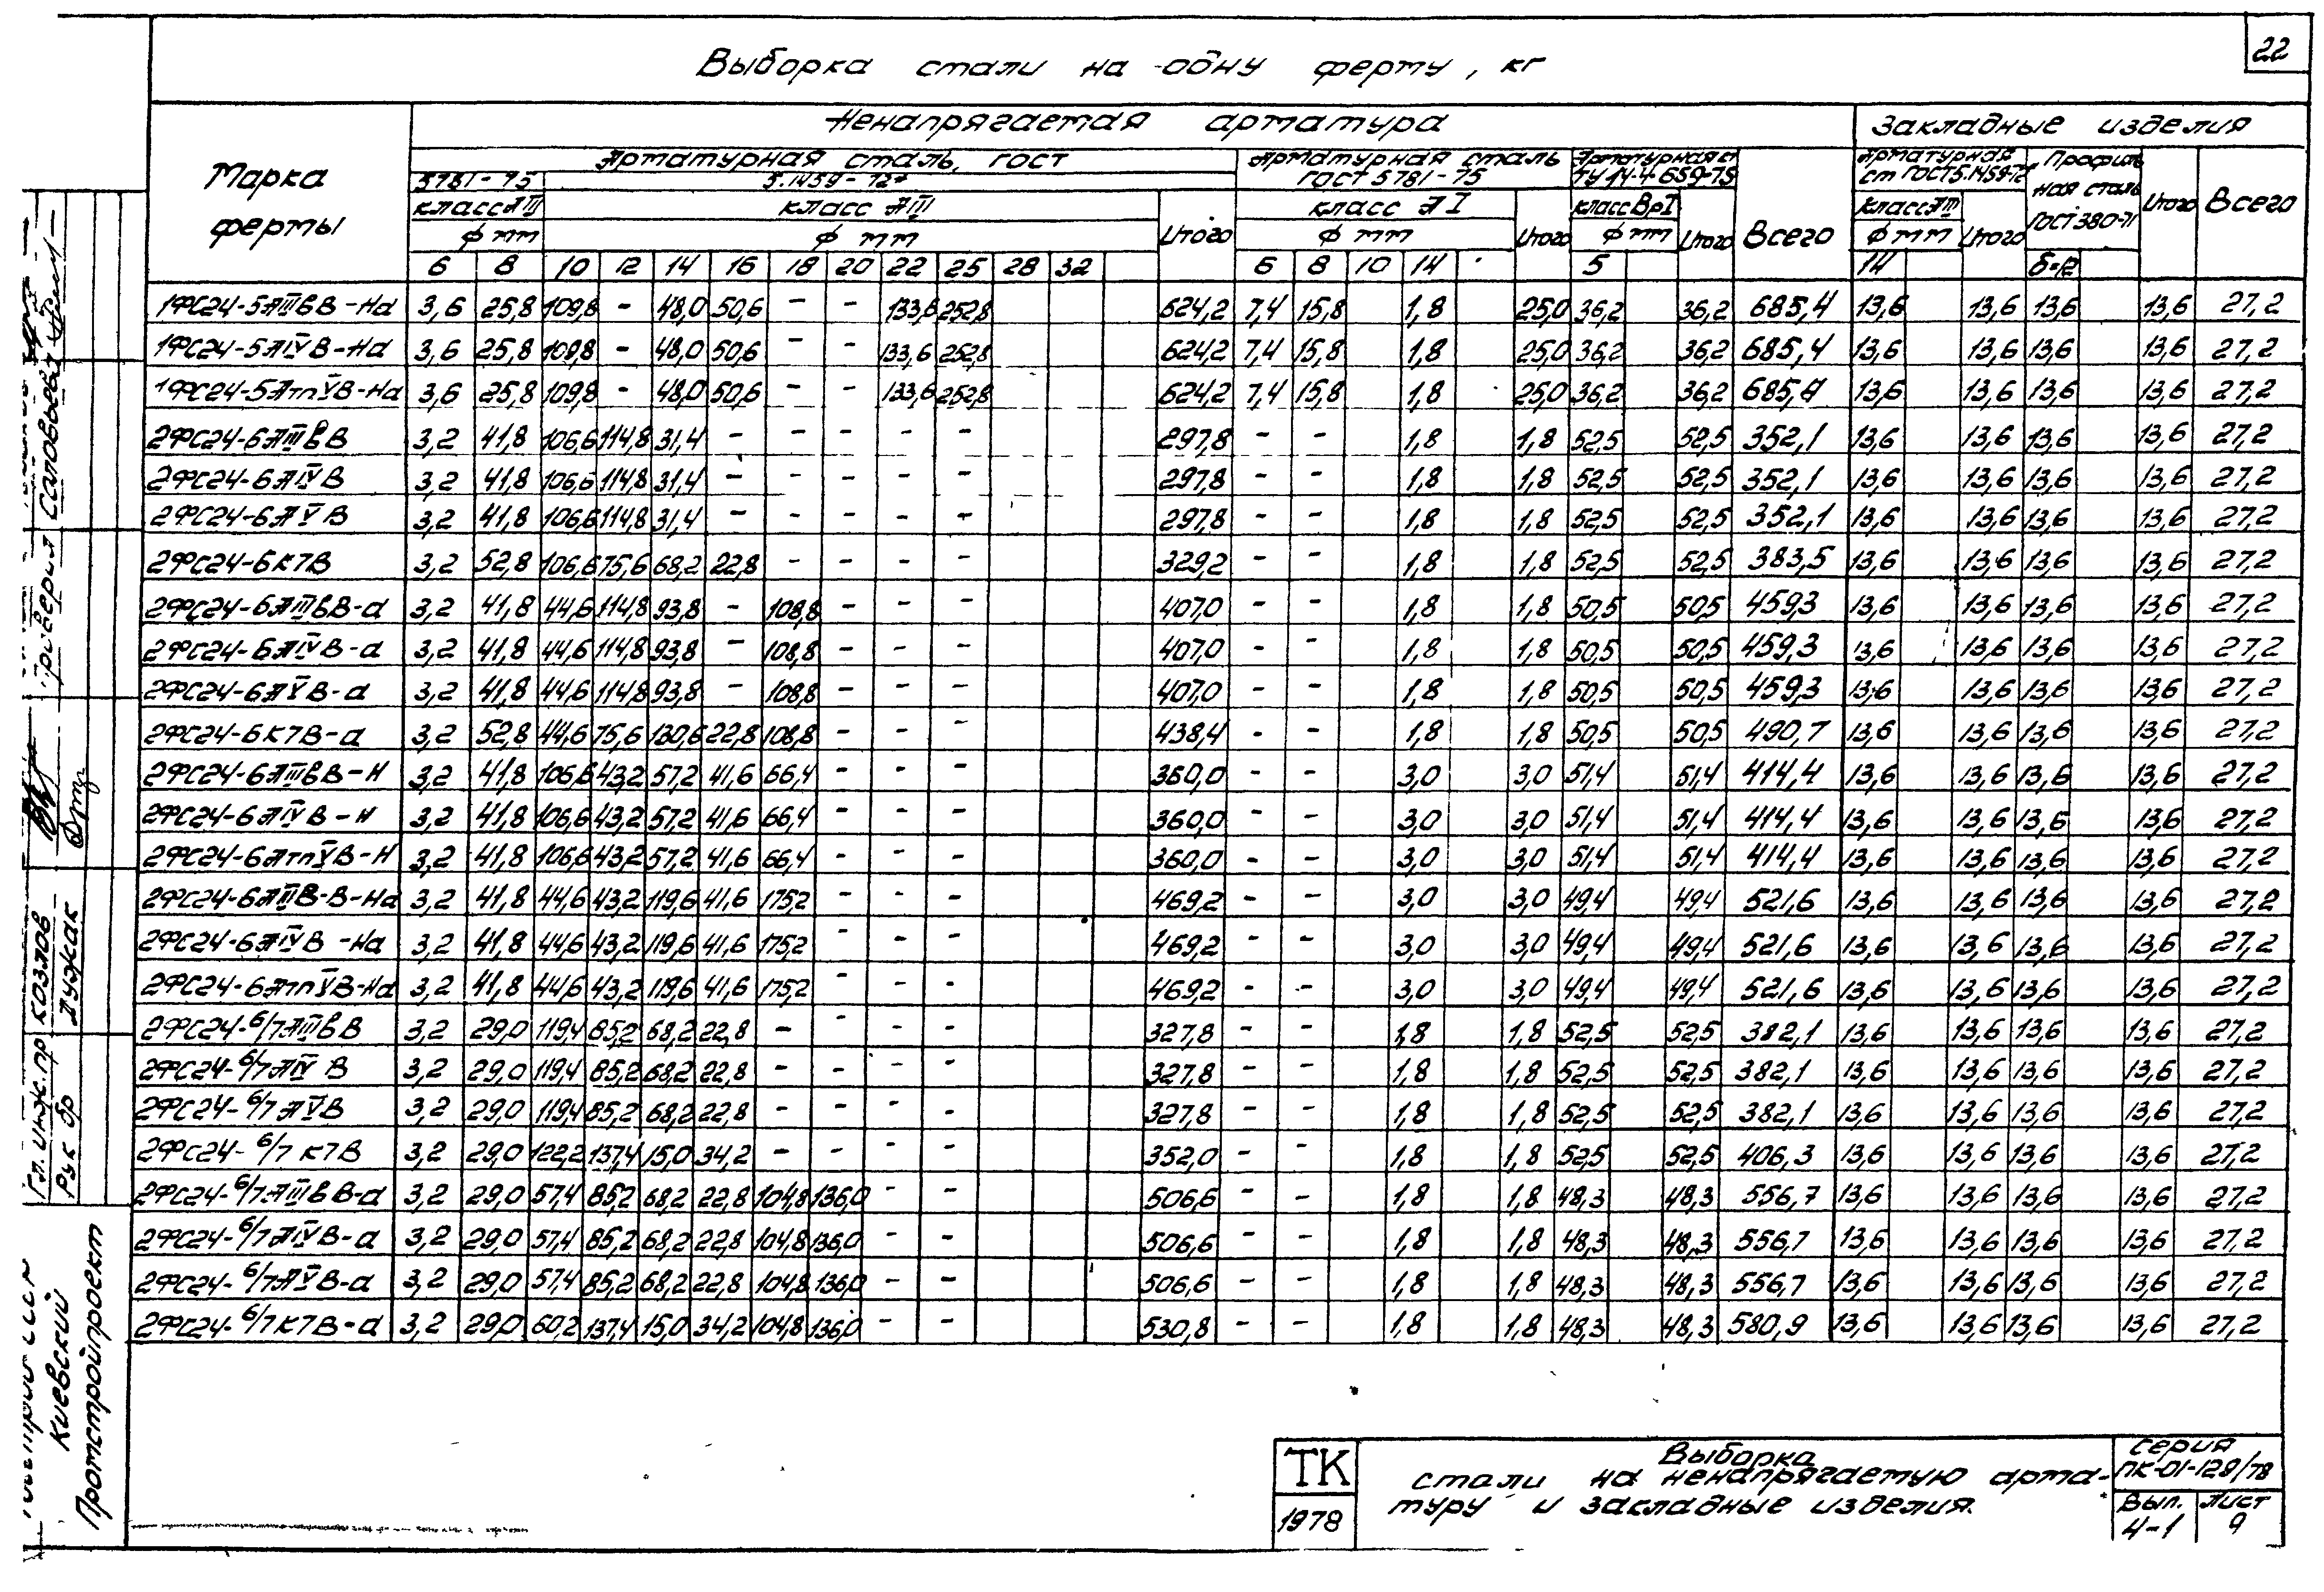 22
Выборка стали на одну ферму, кг
Марка фермы
Ненапрягаемая арматура
Закладные изделия
Арматурная сталь, гост
5781-75
5.1459-72*
класс АIII
класс АIII
ф мм
ф мм
Итого
Арматурная сталь ГОСТ 5781-75
класс АI
ф мм
Итого
Арматурная ст ТУ 14-4-659-75
класс ВрI
ф мм
Итого
Всего
Арматурная ст ГОСТ 5.1459-72
класс АIII
ф мм
Итого
Профильная сталь ГОСТ 380-71
Итого
Всего
6 8 10 12 14 16 18 20 22 25 28 32 6 8 10 14 5 14 δ=12
1ФС24-5АIIIвВ-На 3,6 25,8 109,8 - 48,0 50,6 - - 133,6 252,8 624,2 7,4 15,8 1,8 25,0 36,2 36,2 685,4 13,6 13,6 13,6 13,6 27,2
1ФС24-5АIVВ-На 3,6 25,8 109,8 - 48,0 50,6 - - 133,6 252,8 624,2 7,4 15,8 1,8 25,0 36,2 36,2 685,4 13,6 13,6 13,6 13,6 27,2
1ФС24-5АтVВ-На 3,6 25,8 109,8 - 48,0 50,6 - - 133,6 252,8 624,2 7,4 15,8 1,8 25,0 36,2 36,2 685,4 13,6 13,6 13,6 13,6 27,2
2ФС24-6АIIIвВ 3,2 41,8 106,6 114,8 31,4 - - - - - 297,8 - - 1,8 1,8 52,5 52,5 352,1 13,6 13,6 13,6 13,6 27,2
2ФС24-6АIVВ 3,2 41,8 106,6 114,8 31,4 - - - - - 297,8 - - 1,8 1,8 52,5 52,5 352,1 13,6 13,6 13,6 13,6 27,2
2ФС24-6АVВ 3,2 41,8 106,6 114,8 31,4 - - - - - 297,8 - - 1,8 1,8 52,5 52,5 352,1 13,6 13,6 13,6 13,6 27,2
2ФС24-6К7В 3,2 52,8 106,6 75,6 68,2 22,8 - - - - 329,2 - - 1,8 1,8 52,5 52,5 383,5 13,6 13,6 13,6 13,6 27,2
2ФС24-6АIIIвВ-а 3,2 41,8 44,6 114,8 93,8 - 108,8 - - - 407,0 - - 1,8 1,8 50,5 50,5 459,3 13,6 13,6 13,6 13,6 27,2
2ФС24-6АIVВ-а 3,2 41,8 44,6 114,8 93,8 - 108,8 - - - 407,0 - - 1,8 1,8 50,5 50,5 459,3 13,6 13,6 13,6 13,6 27,2
2ФС24-6АVВ-а 3,2 41,8 44,6 114,8 93,8 - 108,8 - - - 407,0 - - 1,8 1,8 50,5 50,5 459,3 13,6 13,6 13,6 13,6 27,2
2ФС24-6К7В-а 3,2 52,8 44,6 75,6 130,6 22,8 108,8 - - - 438,4 - - 1,8 1,8 50,5 50,5 490,7 13,6 13,6 13,6 13,6 27,2
2ФС24-6АIIIвВ-Н 3,2 41,8 106,6 43,2 57,2 41,6 66,4 - - - 360,0 - - 3,0 3,0 51,4 51,4 414,4 13,6 13,6 13,6 13,6 27,2
2ФС24-6АIVВ-Н 3,2 41,8 106,6 43,2 57,2 41,6 66,4 - - - 360,0 - - 3,0 3,0 51,4 51,4 414,4 13,6 13,6 13,6 13,6 27,2
2ФС24-6АтVВ-Н 3,2 41,8 106,6 43,2 57,2 41,6 66,4 - - - 360,0 - - 3,0 3,0 51,4 51,4 414,4 13,6 13,6 13,6 13,6 27,2
2ФС24-6АIIIВ-В-На 3,2 41,8 44,6 43,2 119,6 41,6 175,2 - - - 469,2 - - 3,0 3,0 49,4 49,4 521,6 13,6 13,6 13,6 13,6 27,2
2ФС24-6АIVВ-На 3,2 41,8 44,6 43,2 119,6 41,6 175,2 - - - 469,2 - - 3,0 3,0 49,4 49,4 521,6 13,6 13,6 13,6 13,6 27,2
2ФС24-6АтVВ-На 3,2 41,8 44,6 43,2 119,6 41,6 175,2 - - - 469,2 - - 3,0 3,0 49,4 49,4 521,6 13,6 13,6 13,6 13,6 27,2
2ФС24-6/7АIIIвВ 3,2 29,0 119,4 85,2 68,2 22,8 - - - - 327,8 - - 1,8 1,8 52,5 52,5 382,1 13,6 13,6 13,6 13,6 27,2
2ФС24-6/7АIVВ 3,2 29,0 119,4 85,2 68,2 22,8 - - - - 327,8 - - 1,8 1,8 52,5 52,5 382,1 13,6 13,6 13,6 13,6 27,2
2ФС24-6/7АVВ 3,2 29,0 119,4 85,2 68,2 22,8 - - - - 327,8 - - 1,8 1,8 52,5 52,5 382,1 13,6 13,6 13,6 13,6 27,2
2ФС24-6/7К7В 3,2 29,0 122,2 137,4 15,0 34,2 - - - - 352,0 - - 1,8 1,8 52,5 52,5 406,3 13,6 13,6 13,6 13,6 27,2
2ФС24-6/7АIIIвВ-а 3,2 29,0 57,4 85,2 68,2 22,8 104,8 136,0 - - 506,6 - - 1,8 1,8 48,3 48,3 556,7 13,6 13,6 13,6 13,6 27,2
2ФС24-6/7АIVВ-а 3,2 29,0 57,4 85,2 68,2 22,8 104,8 136,0 - - 506,6 - - 1,8 1,8 48,3 48,3 556,7 13,6 13,6 13,6 13,6 27,2
2ФС24-6/7АVВ-а 3,2 29,0 57,4 85,2 68,2 22,8 104,8 136,0 - - 506,6 - - 1,8 1,8 48,3 48,3 556,7 13,6 13,6 13,6 13,6 27,2
2ФС24-6/7К7В-а 3,2 29,0 60,2 137,4 15,0 34,2 104,8 136,0 - - 530,8 - - 1,8 1,8 48,3 48,3 580,9 13,6 13,6 13,6 13,6 27,2
ТК
1978
Выборка
стали на ненапрягаемую арма-
туру и закладные изделия.
Серия
ПК-01-129/78
Вып. Лист
4-1 9
Проверил Саловьева
Гл. инж. пр Козлов
Рук бр Дужак
Киевский
Промстройпроект